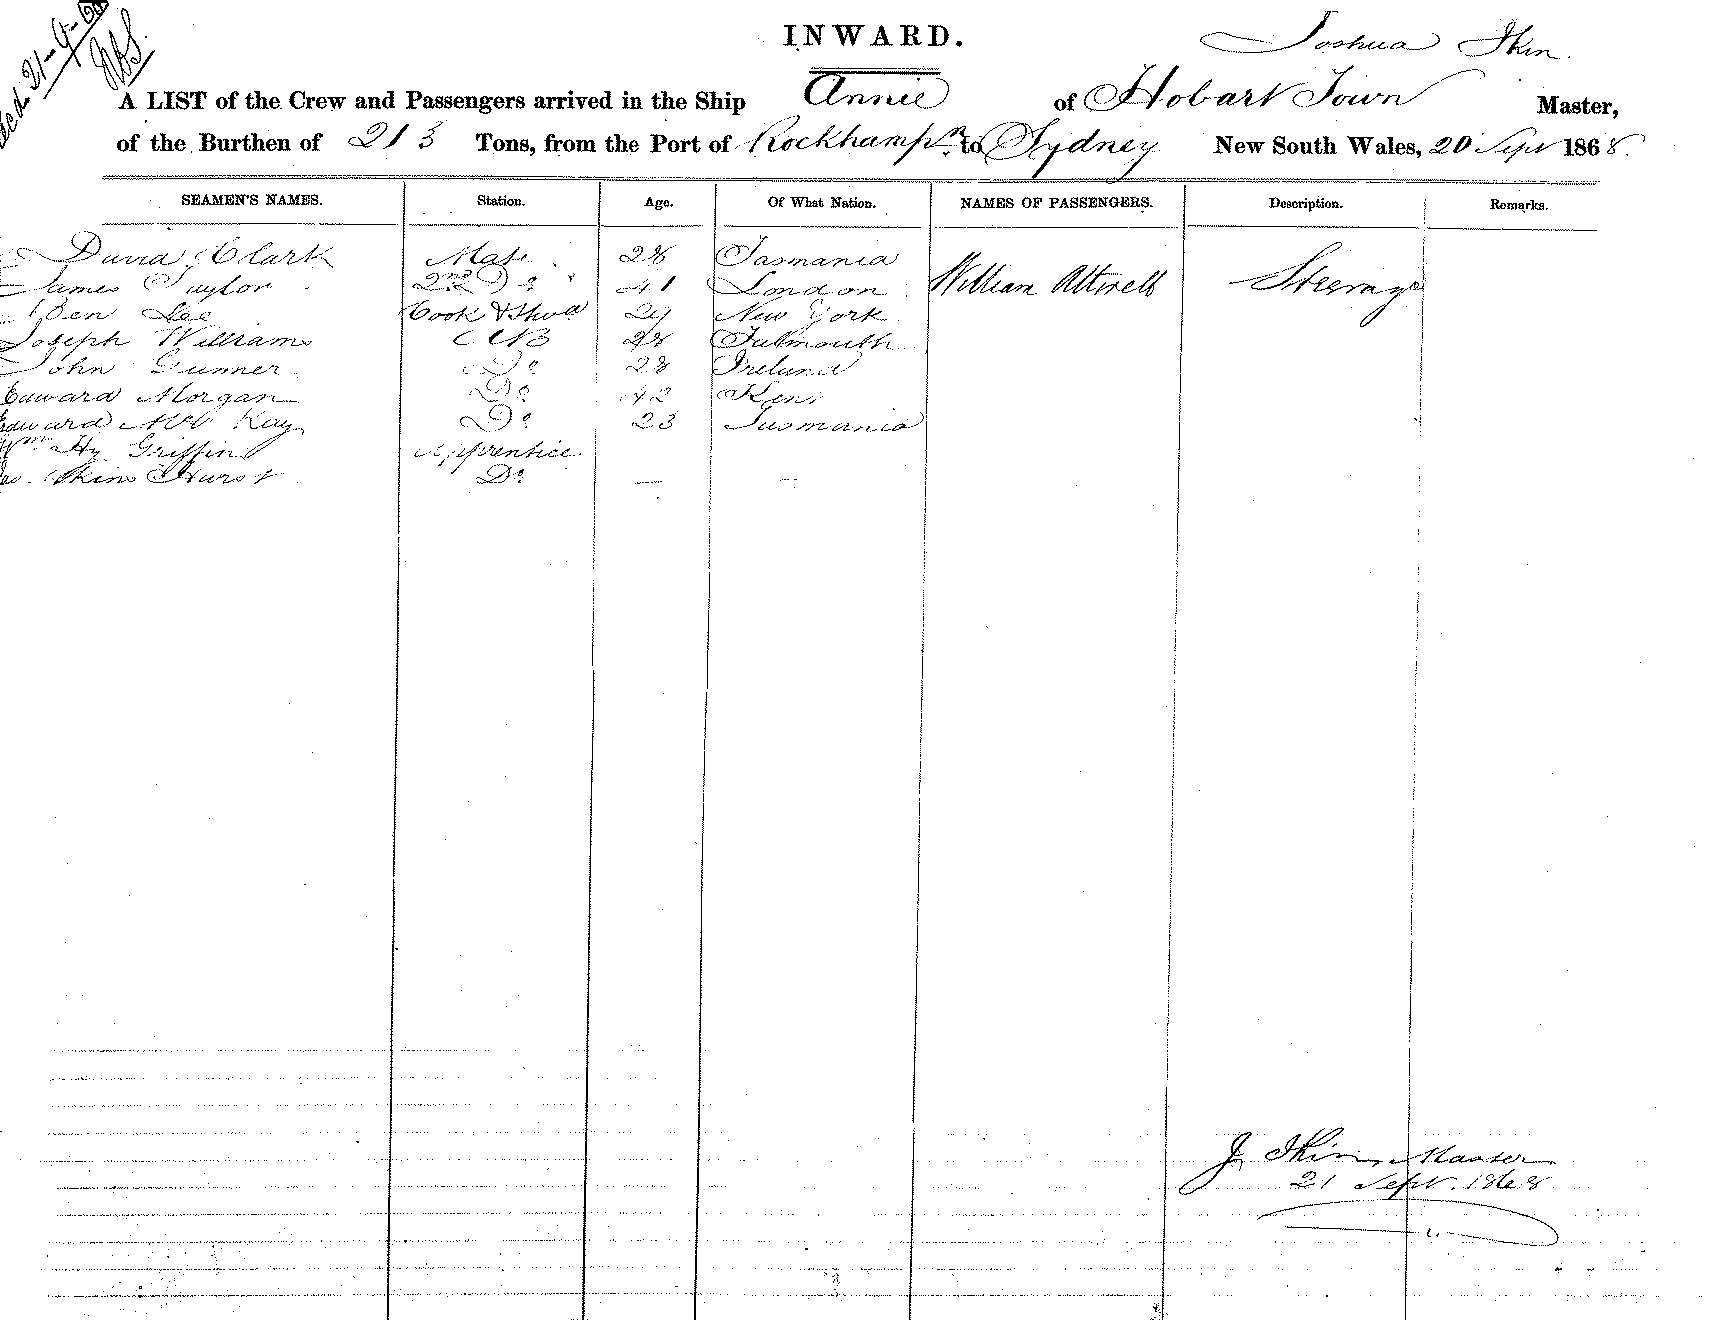 21-9-68
INWARD.
Joshua Ikin.
A LIST of the Crew and Passengers arrived in the Ship Annie of Hobart Town Master,
of the Burthen of 213 Tons, from the Port of Rockhampn to Sydney New South Wales, 20 Sept 1868.
SEAMEN'S NAMES. Station. Age. Of What Nation. NAMES OF PASSENGERS. Description. Remarks.
David Clark Mate 28 Tasmania
James Taylor 2nd Do 41 London William Attwell Steerage
Ben Lee Cook & Stwd New York
Joseph Williams AB 28 Falmouth
John Gunner Do 28 Ireland
Edward Morgan Do 42 Kent
Edward McKay Do 23 Tasmania
Wm Hy Griffin Apprentice
Ikin Hurst Do — —
J Ikin, Master
21 Sept. 1868